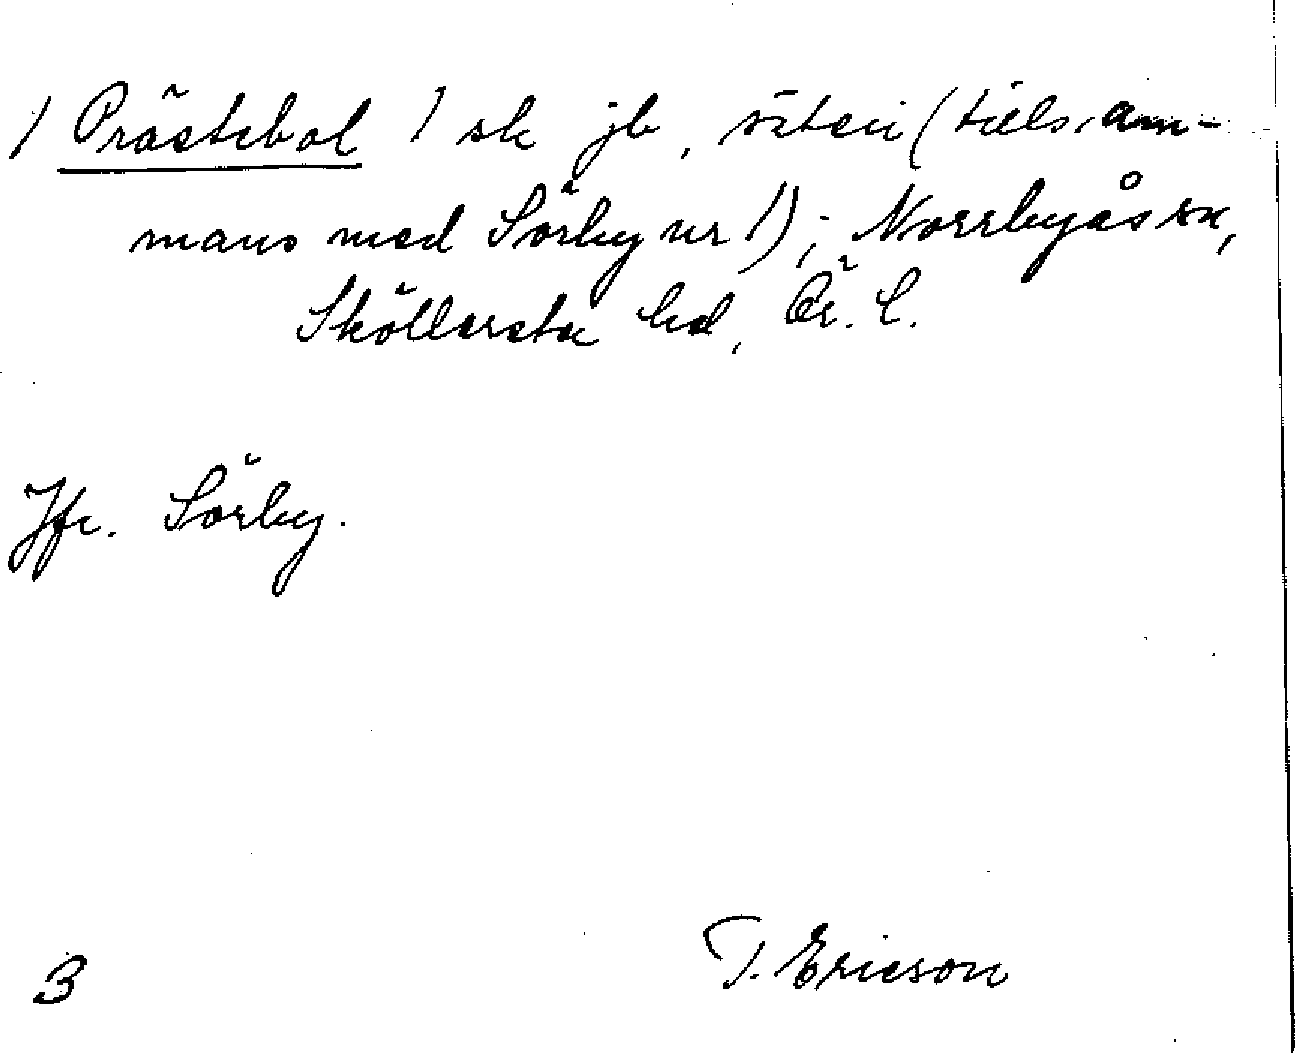 1) Prästebol 1 sk jb, säteri (tillsam-
mans med Sörby nr 1); Norrbyås sn,
Sköllersta hd, Ör. l.
Jfr. Sörby.
T. Ericson
3